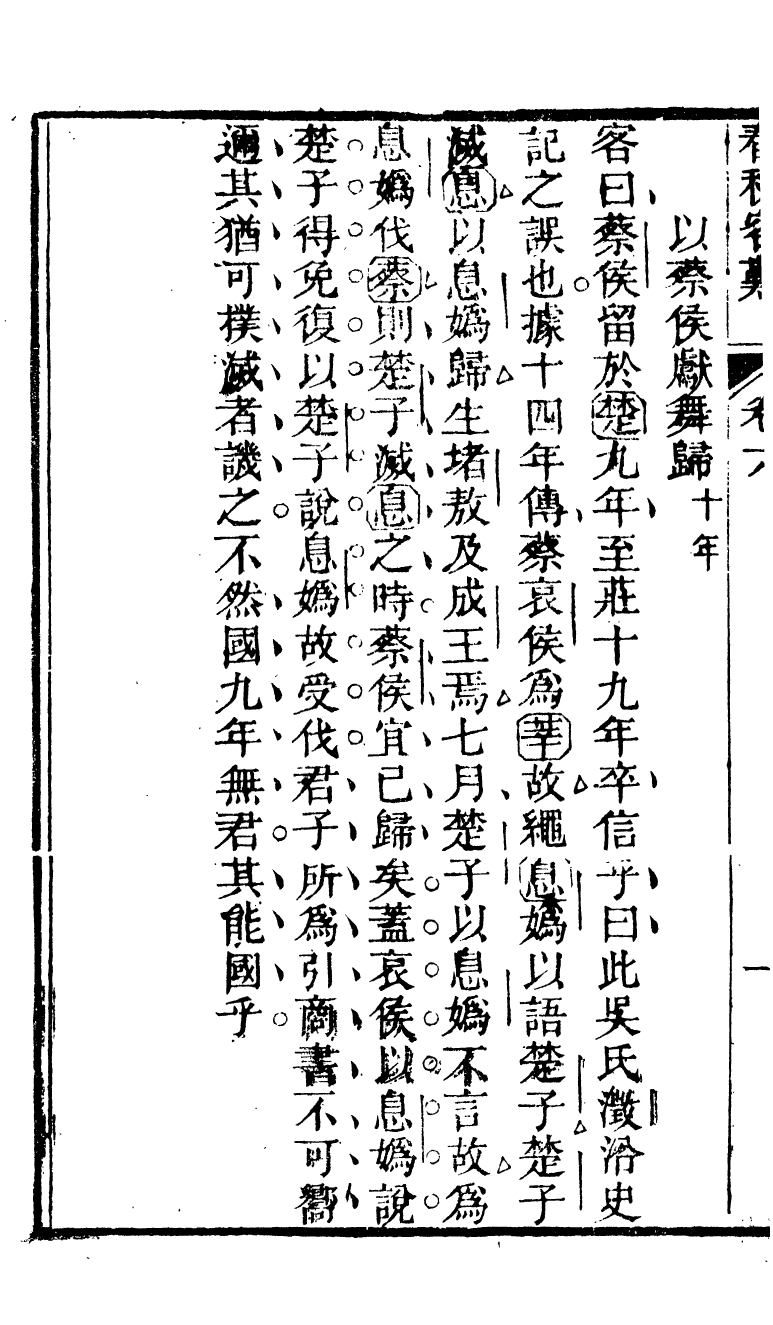 以蔡侯獻舞歸十年
客曰蔡侯留於楚九年至莊十九年卒信乎曰此吳氏澂沿史
記之誤也據十四年傳蔡哀侯爲莘故繩息嬀以語楚子楚子
滅息以息嬀歸生堵敖及成王焉七月楚子以息嬀不言故爲
息嬀伐蔡則楚子滅息之時蔡侯宜已歸矣蓋哀侯以息嬀說
楚子得免復以楚子說息嬀故受伐君子所爲引商書不可嚮
邇其猶可撲滅者譏之不然國九年無君其能國乎